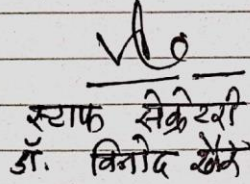 स्टाफ सेक्रेटरी
डॉ. विनोद खैरे